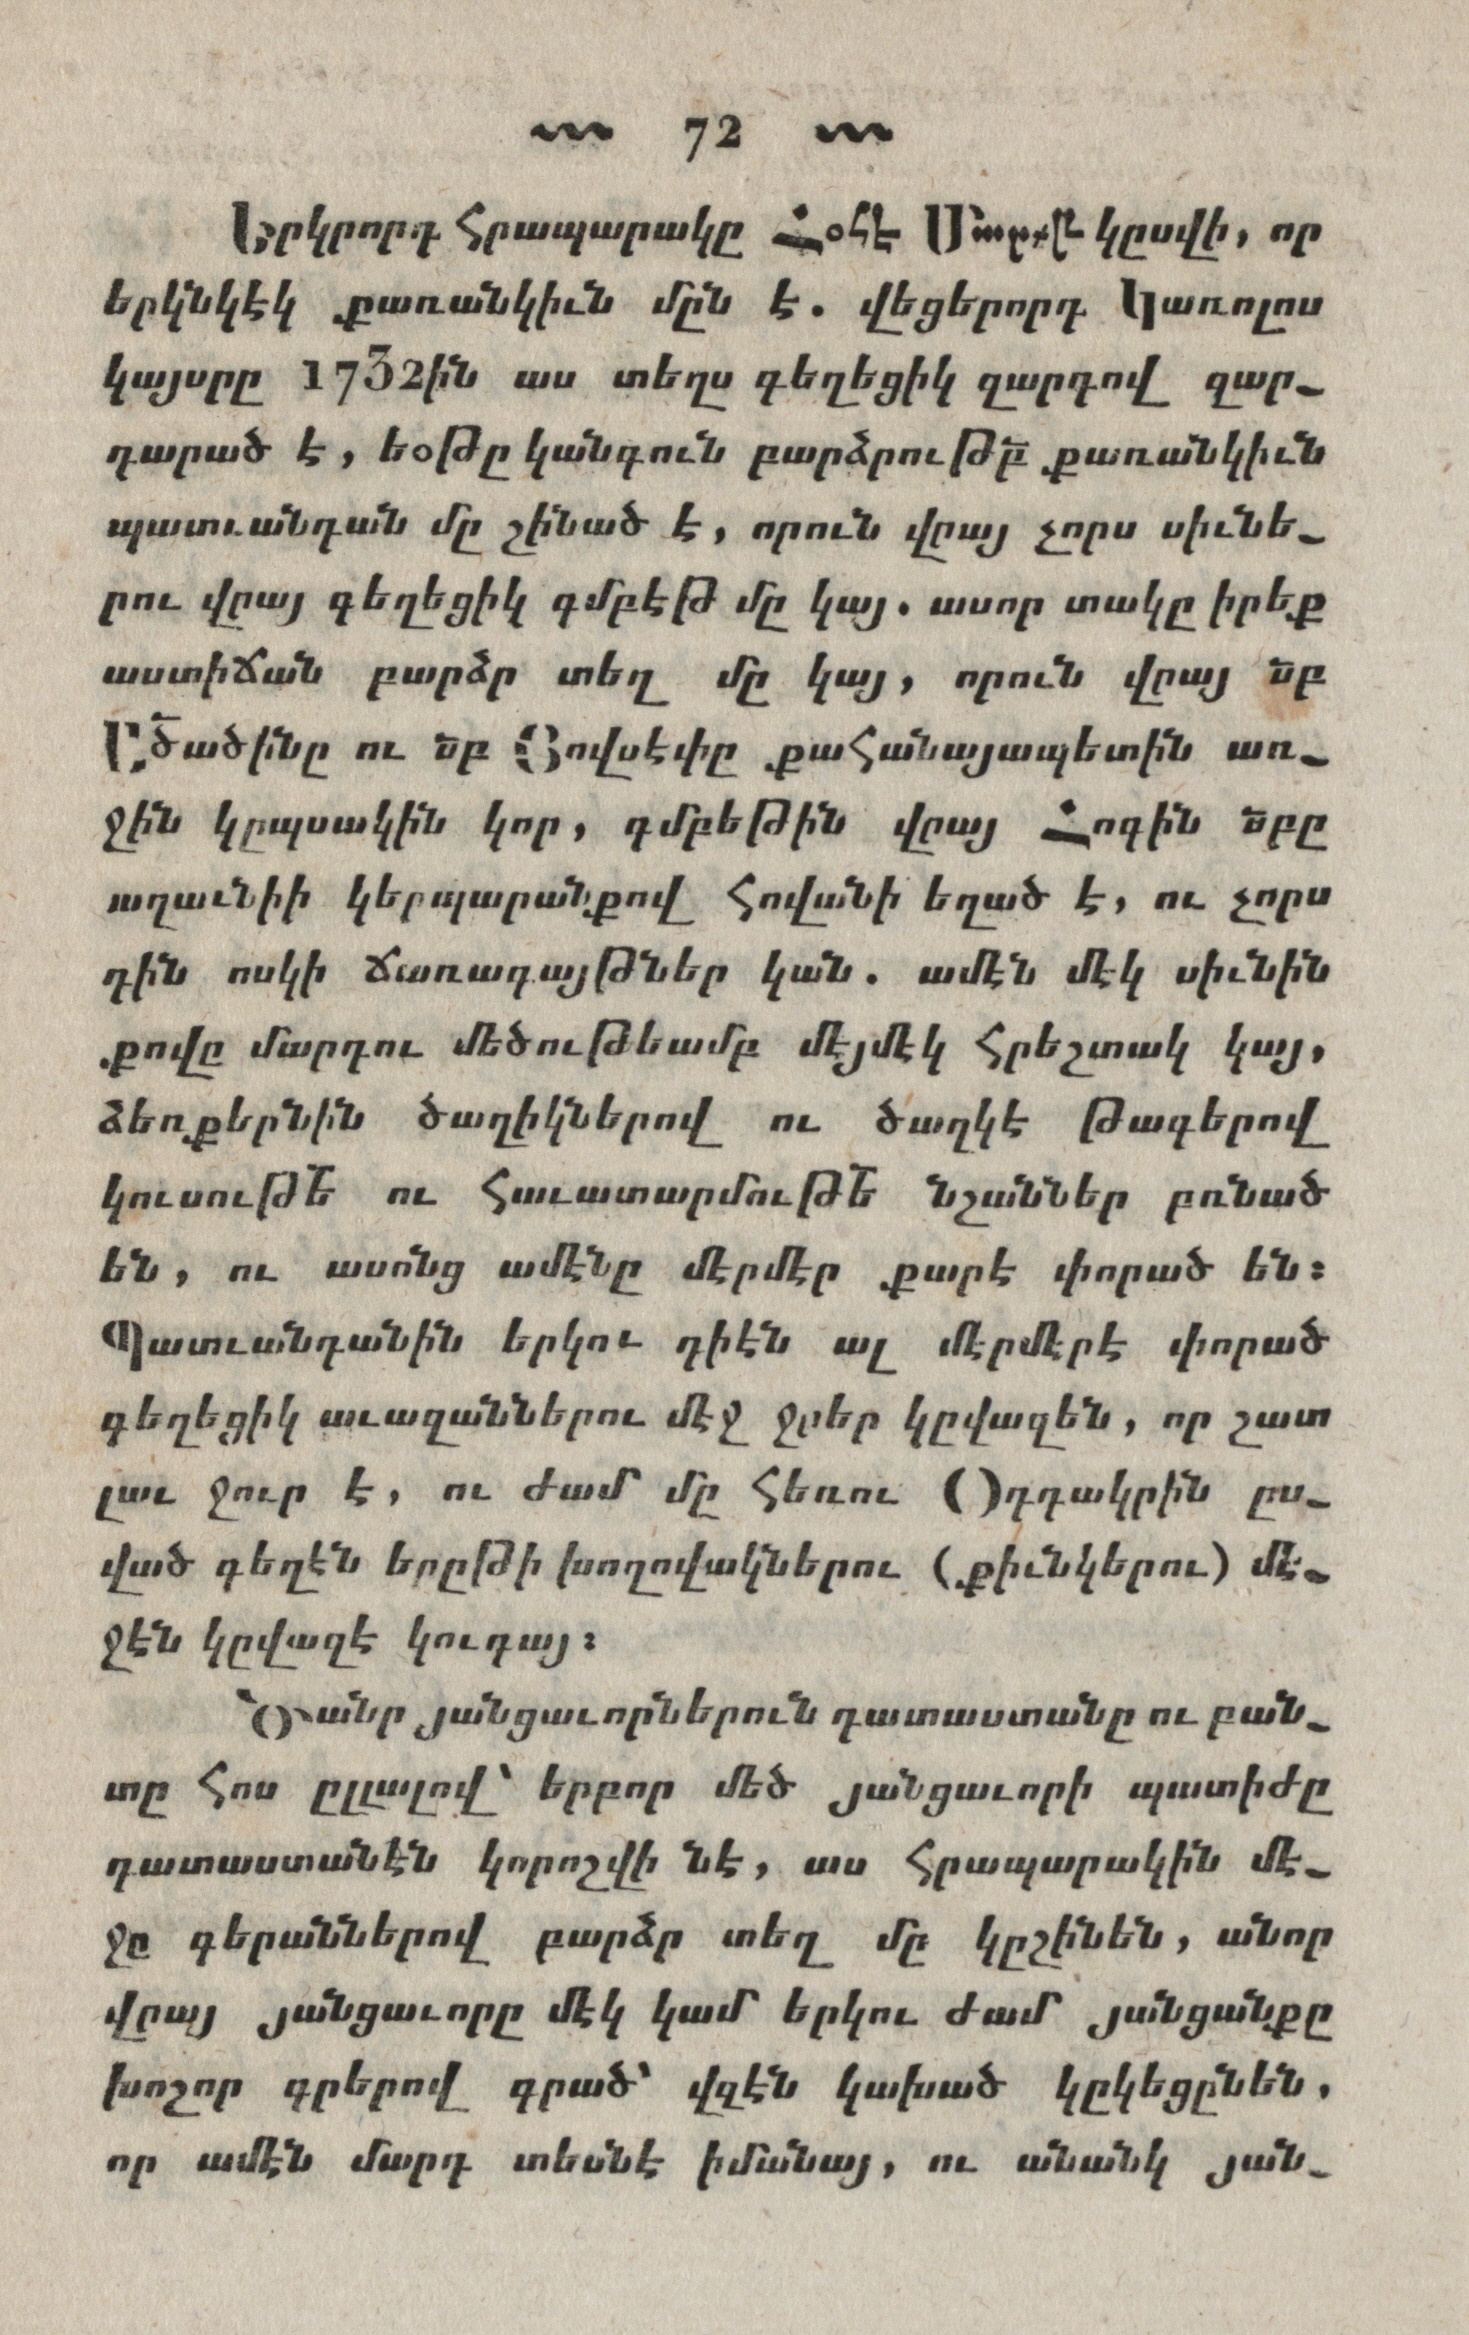 72
Երկրորդ հրապարակը Հօհէ Մարքլ կըսվի, որ
երկնկէկ քառանկիւն մըն է. վեցերորդ Կառոլոս
կայսրը 1732ին աս տեղս գեղեցիկ զարդով զար-
դարած է, եօթը կանգուն բարձրութբ̃ քառանկիւն
պատւանդան մը շինած է, որուն վրայ չորս սիւնե-
րու վրայ գեղեցիկ գմբէթ մը կայ. ասոր տակը իրեք
աստիճան բարձր տեղ մը կայ, որուն վրայ ս̃բ
Ը̃ծածինը ու ս̃բ Յովսէփը քահանայապետին առ-
ջին կըպսակին կոր, գմբեթին վրայ Հոգին ս̃բը
աղաւնիի կերպարանքով հովանի եղած է, ու չորս
դին ոսկի ճառագայթներ կան. ամէն մէկ սիւնին
քովը մարդու մեծութեամբ մէյմէկ հրեշտակ կայ,
ձեռքերնին ծաղիկներով ու ծաղկէ թագերով
կուսութե̃ ու հաւատարմութե̃ նշաններ բռնած
են, ու ասոնց ամէնը մէրմէր քարէ փորած են։
Պատւանդանին երկու դիէն ալ մէրմէրէ փորած
գեղեցիկ աւազաններու մէջ ջրեր կըվազեն, որ շատ
լաւ ջուր է, ու ժամ մը հեռու Օդդակրին ըս-
ված գեղէն երըթի խողովակներու (քիւնկերու) մէ-
ջէն կըվազէ կուգայ։
Ծանր յանցաւորներուն դատաստանը ու բան-
տը հոս ըլլալով՝ երբոր մեծ յանցաւորի պատիժը
դատաստանէն կորոշվի նէ, աս հրապարակին մէ-
ջը գերաններով բարձր տեղ մը կըշինեն, անոր
վրայ յանցաւորը մէկ կամ երկու ժամ յանցանքը
խոշոր գրերով գրած՝ վզէն կախած կըկեցընեն,
որ ամէն մարդ տեսնէ իմանայ, ու անանկ յան-